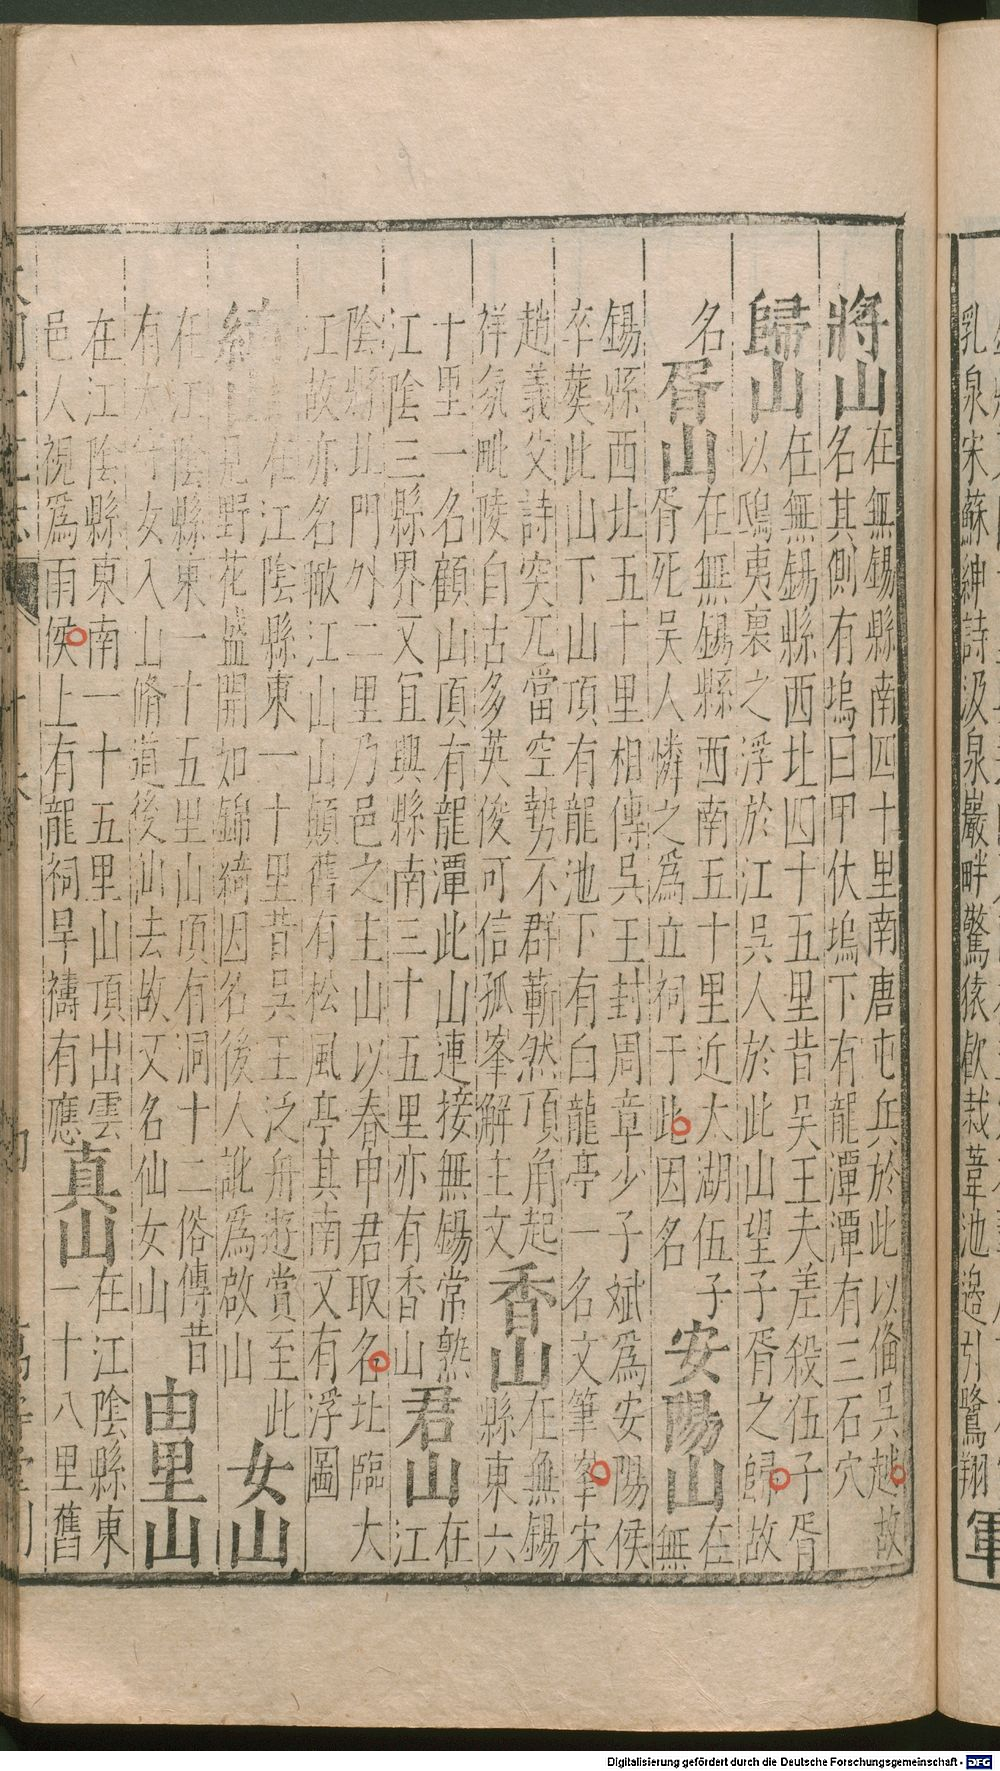 乳泉宋蘇紳詩汲泉巖畔驚猿飲栽葦池邊引鷺翔
軍
將山
在無錫縣南四十里南唐屯兵於此以偹吳越故
名其側有塢曰甲伏塢下有龍潭潭有三石穴
歸山
在無錫縣西北四十五里昔吳王夫差殺伍子胥
以鴟夷裹之浮於江吳人於此山望子胥之歸故
名
胥山
在無錫縣西南五十里近大湖伍子
胥死吳人憐之爲立祠于此因名
安陽山
在
無
錫縣西北五十里相傳吳王封周章少子斌爲安陽侯
卒葬此山下山頂有龍池下有白龍亭一名文筆峯宋
趙義父詩突兀當空勢不群嶄然頂角起
祥氛毗陵自古多英俊可信孤峯解主文
香山
在無錫
縣東六
十里一名顧山頂有龍潭此山連接無錫常熟
江陰三縣界又宜興縣南三十五里亦有香山
君山
在
江
陰縣北門外二里乃邑之主山以春申君取名北臨大
江故亦名瞰江山山顛舊有松風亭其南又有浮圖
綺山
在江陰縣東一十里昔吳王泛舟遊賞至此
見野花盛開如錦綺因名後人訛爲啟山
女山
在江陰縣東一十五里山頂有洞十二俗傳昔
有大守女入山脩道後仙去故又名仙女山
由里山
在江陰縣東南一十五里山頂出雲
邑人視爲雨候上有龍祠旱禱有應
真山
在江陰縣東
一十八里舊
Digitalisierung gefördert durch die Deutsche Forschungsgemeinschaft - DFG